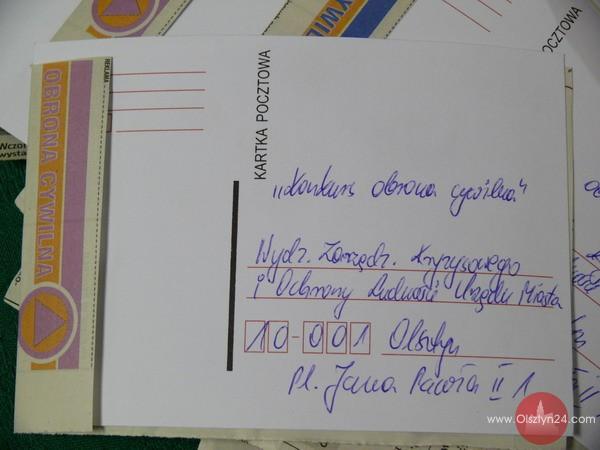 REKLAMA
OBRONA CYWILNA
KARTKA POCZTOWA
„Konkurs obrona cywilna"
Wydz. Zarządz. Kryzysowego
i Ochrony Ludności Urzędu Miasta
10-001 Olsztyn
Pl. Jana Pawła II 1
OBRONA CYWILNA
YWILN
POCZTOWA
Wczor
wysta
www.Olsztyn24.com